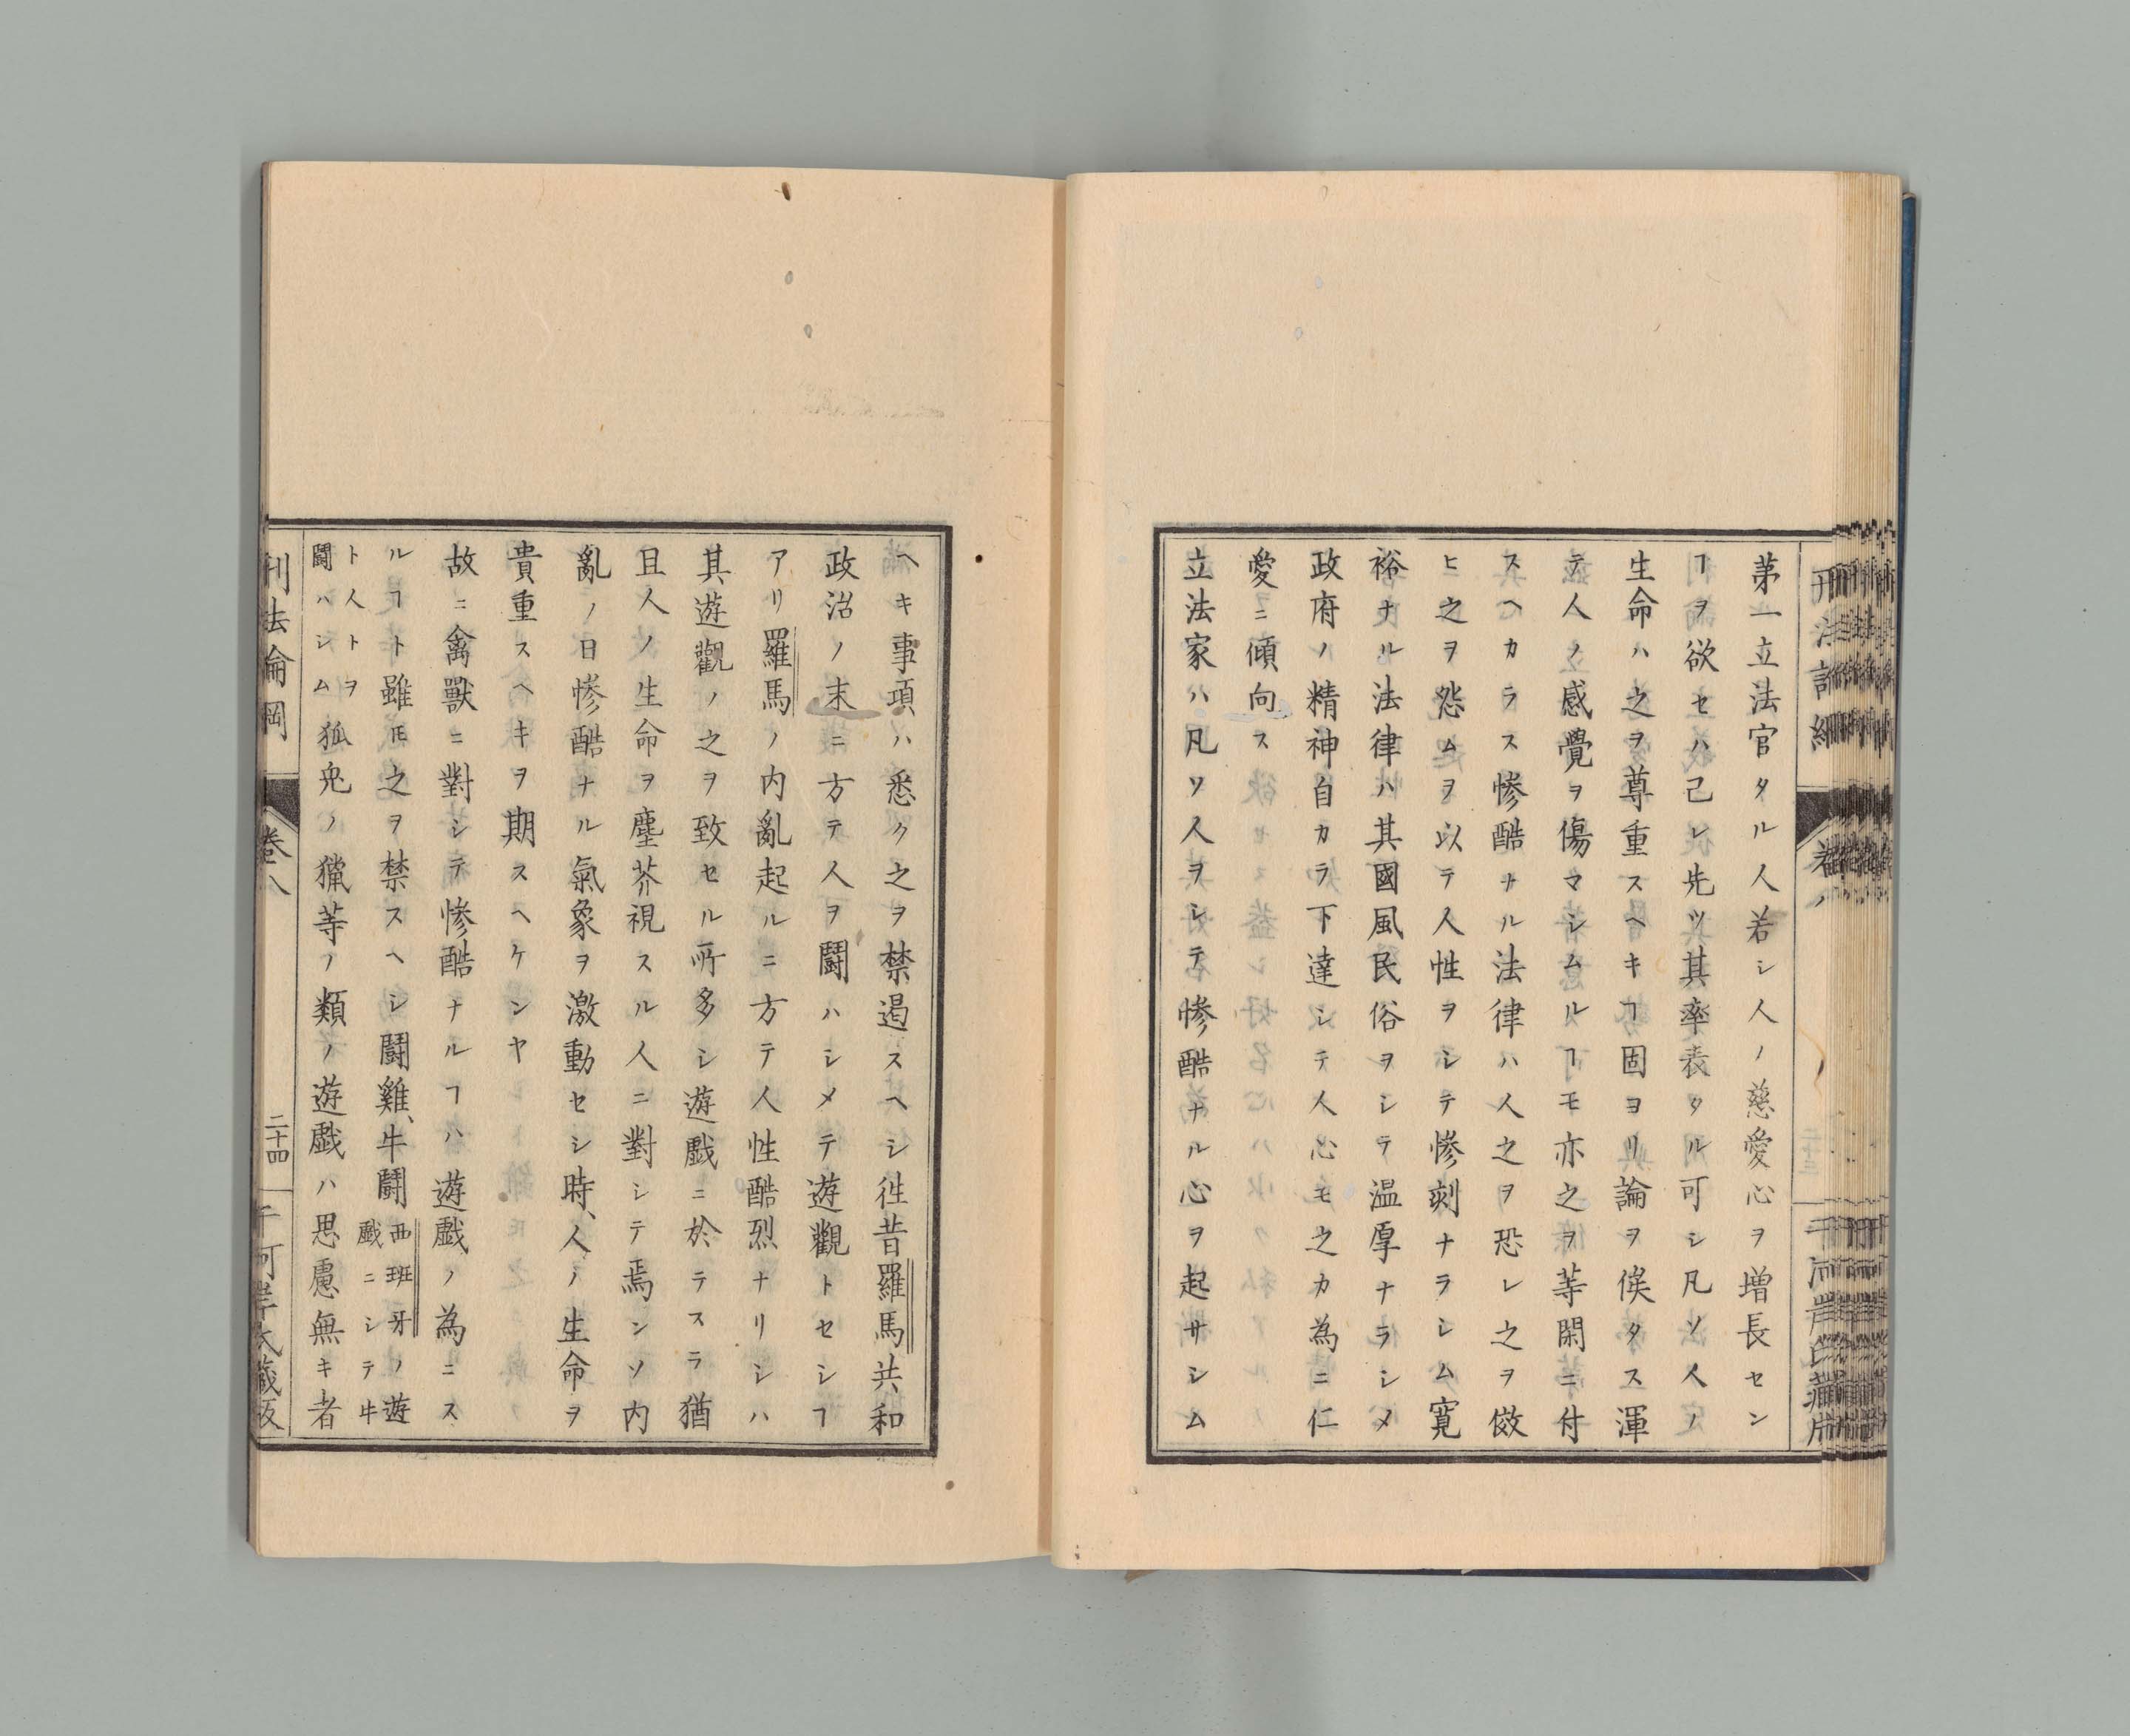 第一立法官タル人若シ人ノ慈愛心ヲ増長セン
ヿヲ欲セハ己レ先ツ其率表タル可シ凡ソ人ノ
生命ハ之ヲ尊重スヘキヿ固ヨリ論ヲ俟タス渾
テ人ノ感覺ヲ傷マシムルヿモ亦之ヲ等閑ニ付
スヘカラス惨酷ナル法律ハ人之ヲ恐レ之ヲ倣
ヒ之ヲ怨ムヲ以テ人性ヲシテ惨刻ナラシム寛
裕ナル法律ハ其國風民俗ヲシテ温厚ナラシメ
政府ノ精神自カラ下達シテ人心モ之カ為ニ仁
愛ニ傾向ス
立法家ハ凡ソ人ヲシテ惨酷ナル心ヲ起サシム
ヘキ事項ハ悉ク之ヲ禁遏スヘシ徃昔羅馬共和
政治ノ末ニ方テ人ヲ鬪ハシメテ遊觀トセシヿ
アリ羅馬ノ内亂起ルニ方テ人性酷烈ナリシハ
其遊觀ノ之ヲ致セル所多シ遊戲ニ於テスラ猶
且人ノ生命ヲ塵芥視スル人ニ對シテ焉ンソ内
亂ノ日惨酷ナル氣象ヲ激動セシ時、人ノ生命ヲ
貴重スヘキヲ期スヘケンヤ
故ニ禽獸ニ對シテ惨酷ナルヿハ遊戲ノ為ニス
ルヿト雖𪜈之ヲ禁スヘシ鬪雞、牛鬪西班牙ノ遊
戲ニシテ牛
ト人トヲ
鬪ハシム狐兎ノ獵等ノ類ノ遊戲ハ思慮無キ者
刑法論綱
卷八
二十四